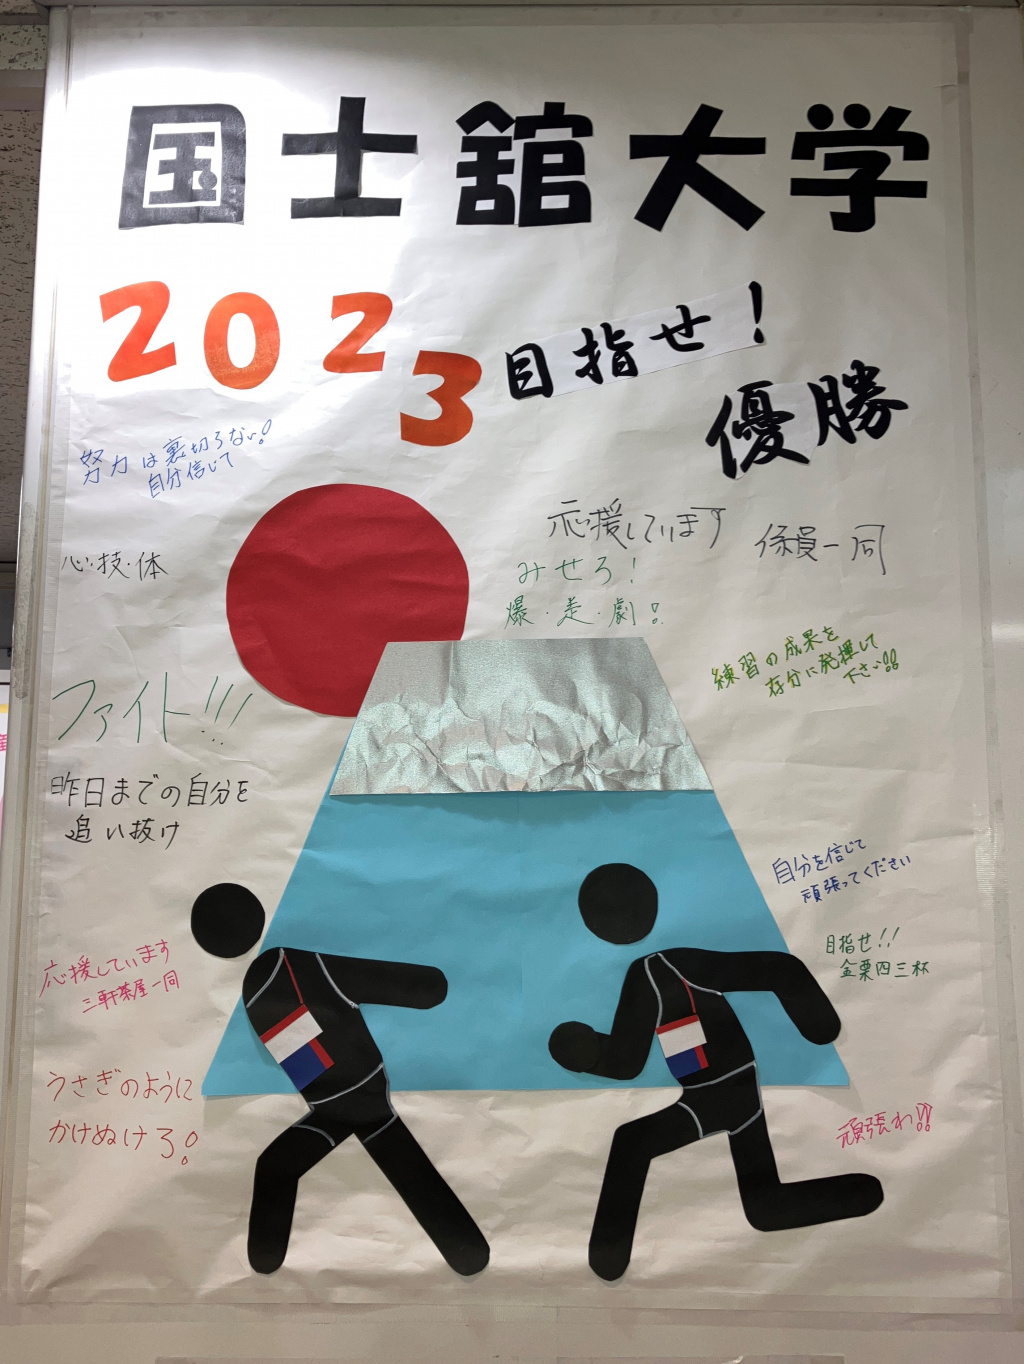 国士舘大学
2023 目指せ!
優勝
努力は裏切らない!
自分信じて
心・技・体
応援しています
係員一同
みせろ!
爆・走・劇!
練習の成果を
存分に発揮して
下さい!!
ファイト!!!
昨日までの自分を
追い抜け
自分を信じて
頑張ってください
目指せ!!!
金栗四三杯
応援しています
三軒茶屋一同
うさぎのように
かけぬけろ!
頑張れ!!